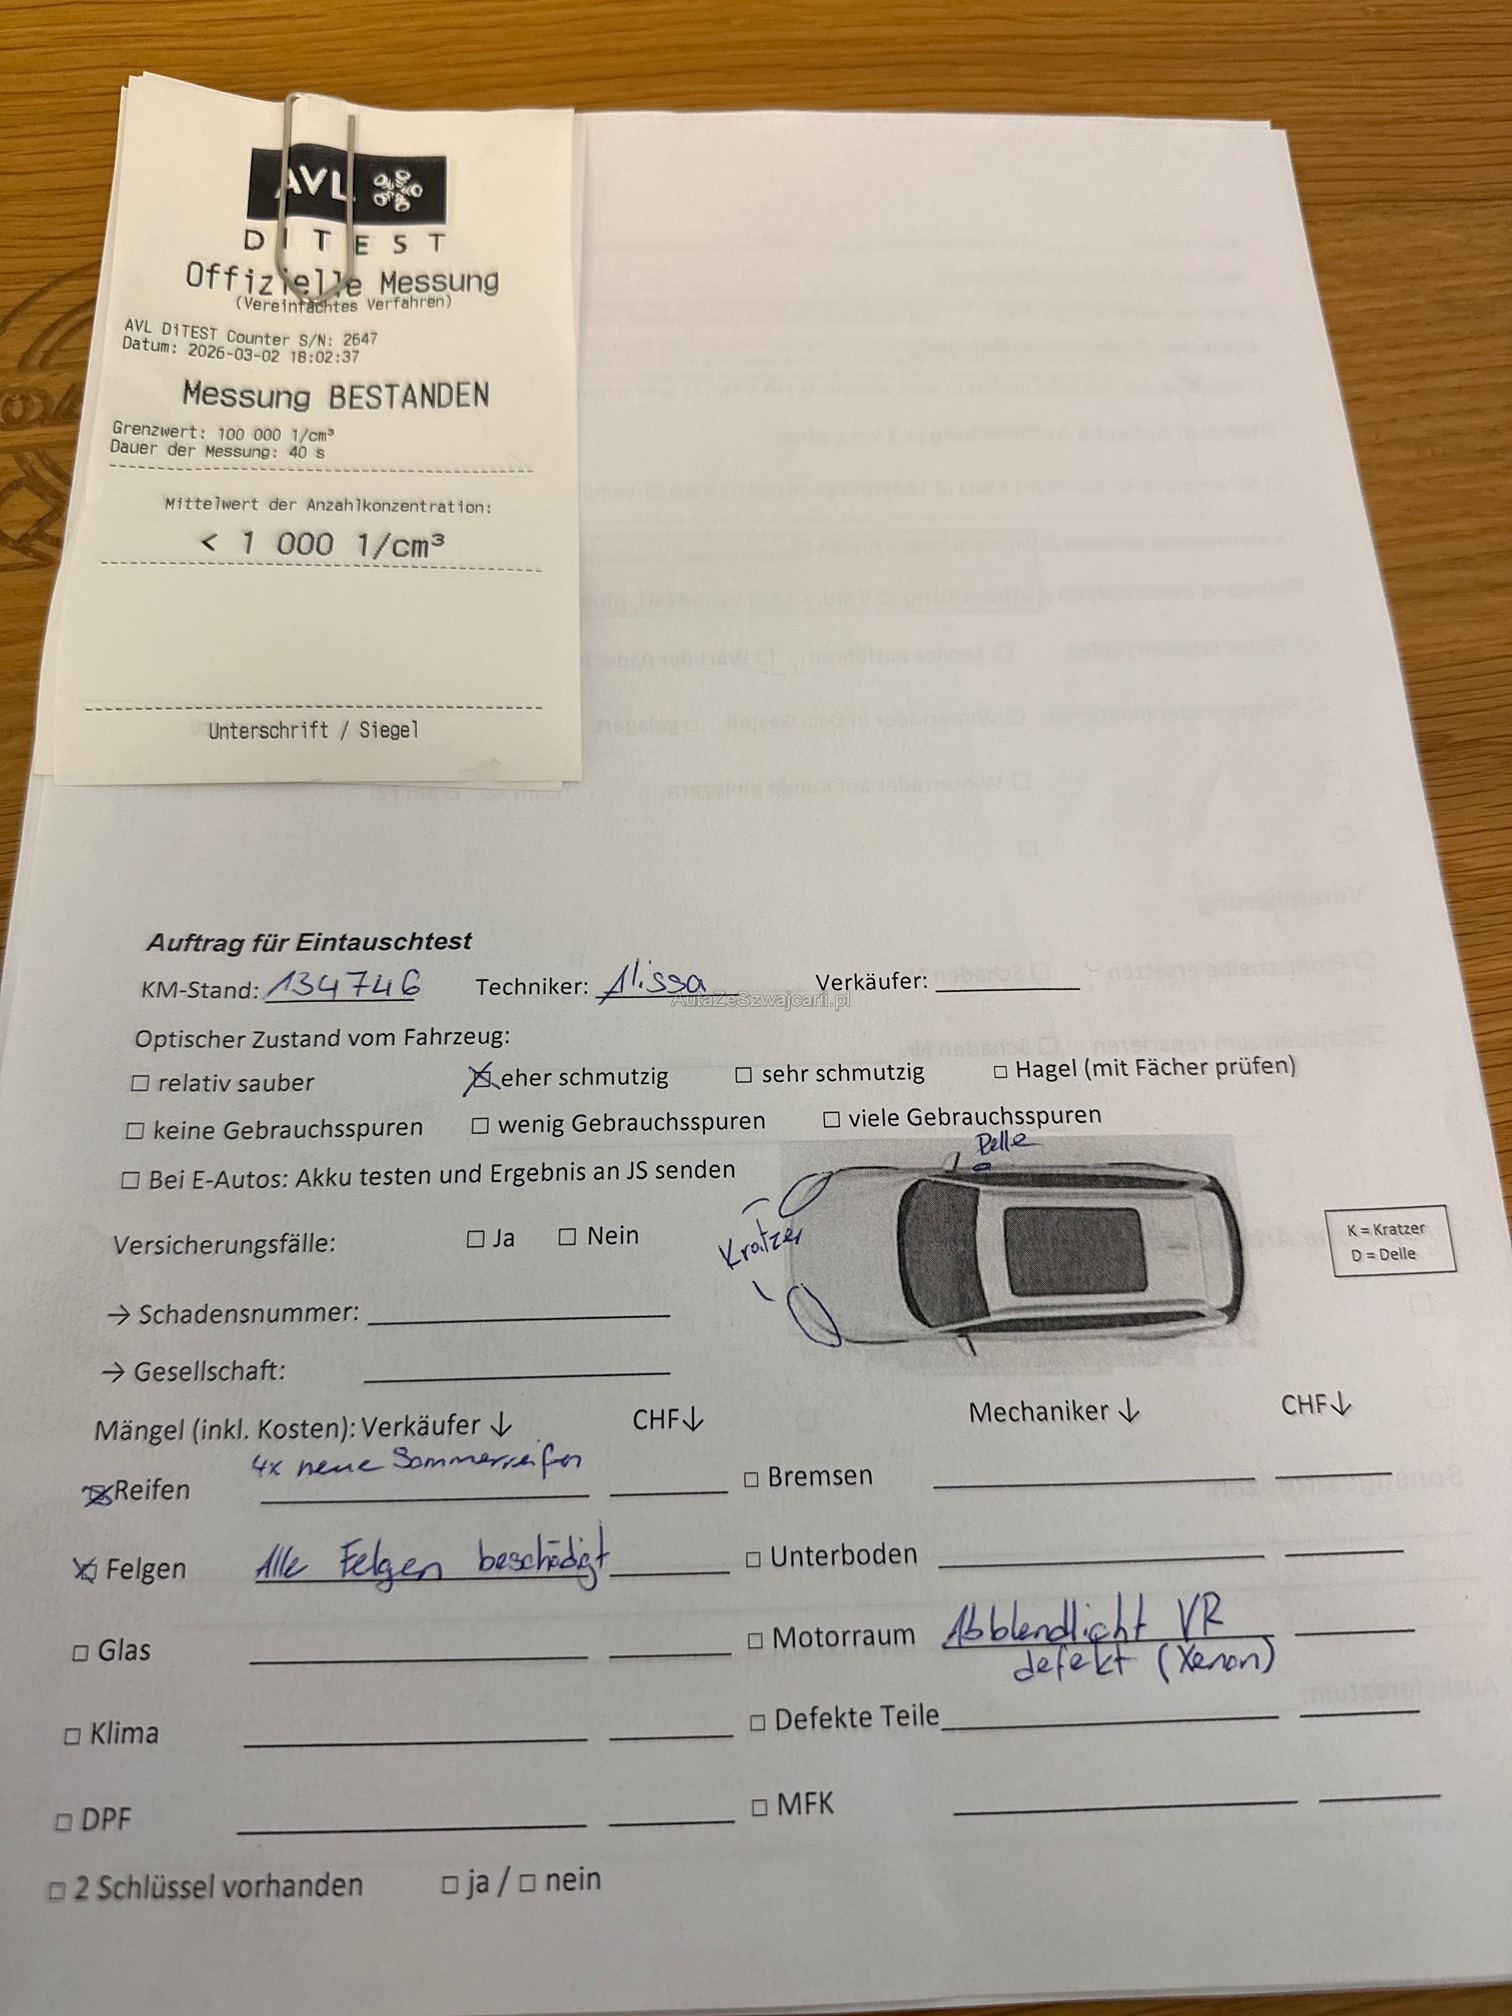 AVL
DITEST
Offizielle Messung
(Vereinfachtes Verfahren)
AVL DiTEST Counter S/N: 2647
Datum: 2026-03-02 18:02:37
Messung BESTANDEN
Grenzwert: 100 000 1/cm³
Dauer der Messung: 40 s
Mittelwert der Anzahlkonzentration:
< 1 000 1/cm³
Unterschrift / Siegel
Auftrag für Eintauschtest
KM-Stand: 134746 Techniker: Alissa Verkäufer:
AutaZeSzwajcarii.pl
Optischer Zustand vom Fahrzeug:
☐ relativ sauber ☒ eher schmutzig ☐ sehr schmutzig ☐ Hagel (mit Fächer prüfen)
☐ keine Gebrauchsspuren ☐ wenig Gebrauchsspuren ☐ viele Gebrauchsspuren
Delle
☐ Bei E-Autos: Akku testen und Ergebnis an JS senden
Kratzer
K = Kratzer
D = Delle
Versicherungsfälle: ☐ Ja ☐ Nein
→ Schadensnummer:
→ Gesellschaft:
Mängel (inkl. Kosten): Verkäufer ↓ CHF↓ Mechaniker ↓ CHF↓
☒ Reifen 4x neue Sommerreifen ☐ Bremsen
☒ Felgen Alle Felgen beschädigt ☐ Unterboden
☐ Glas ☐ Motorraum Abblendlicht VR
defekt (Xenon)
☐ Klima ☐ Defekte Teile
☐ DPF ☐ MFK
☐ 2 Schlüssel vorhanden ☐ ja / ☐ nein